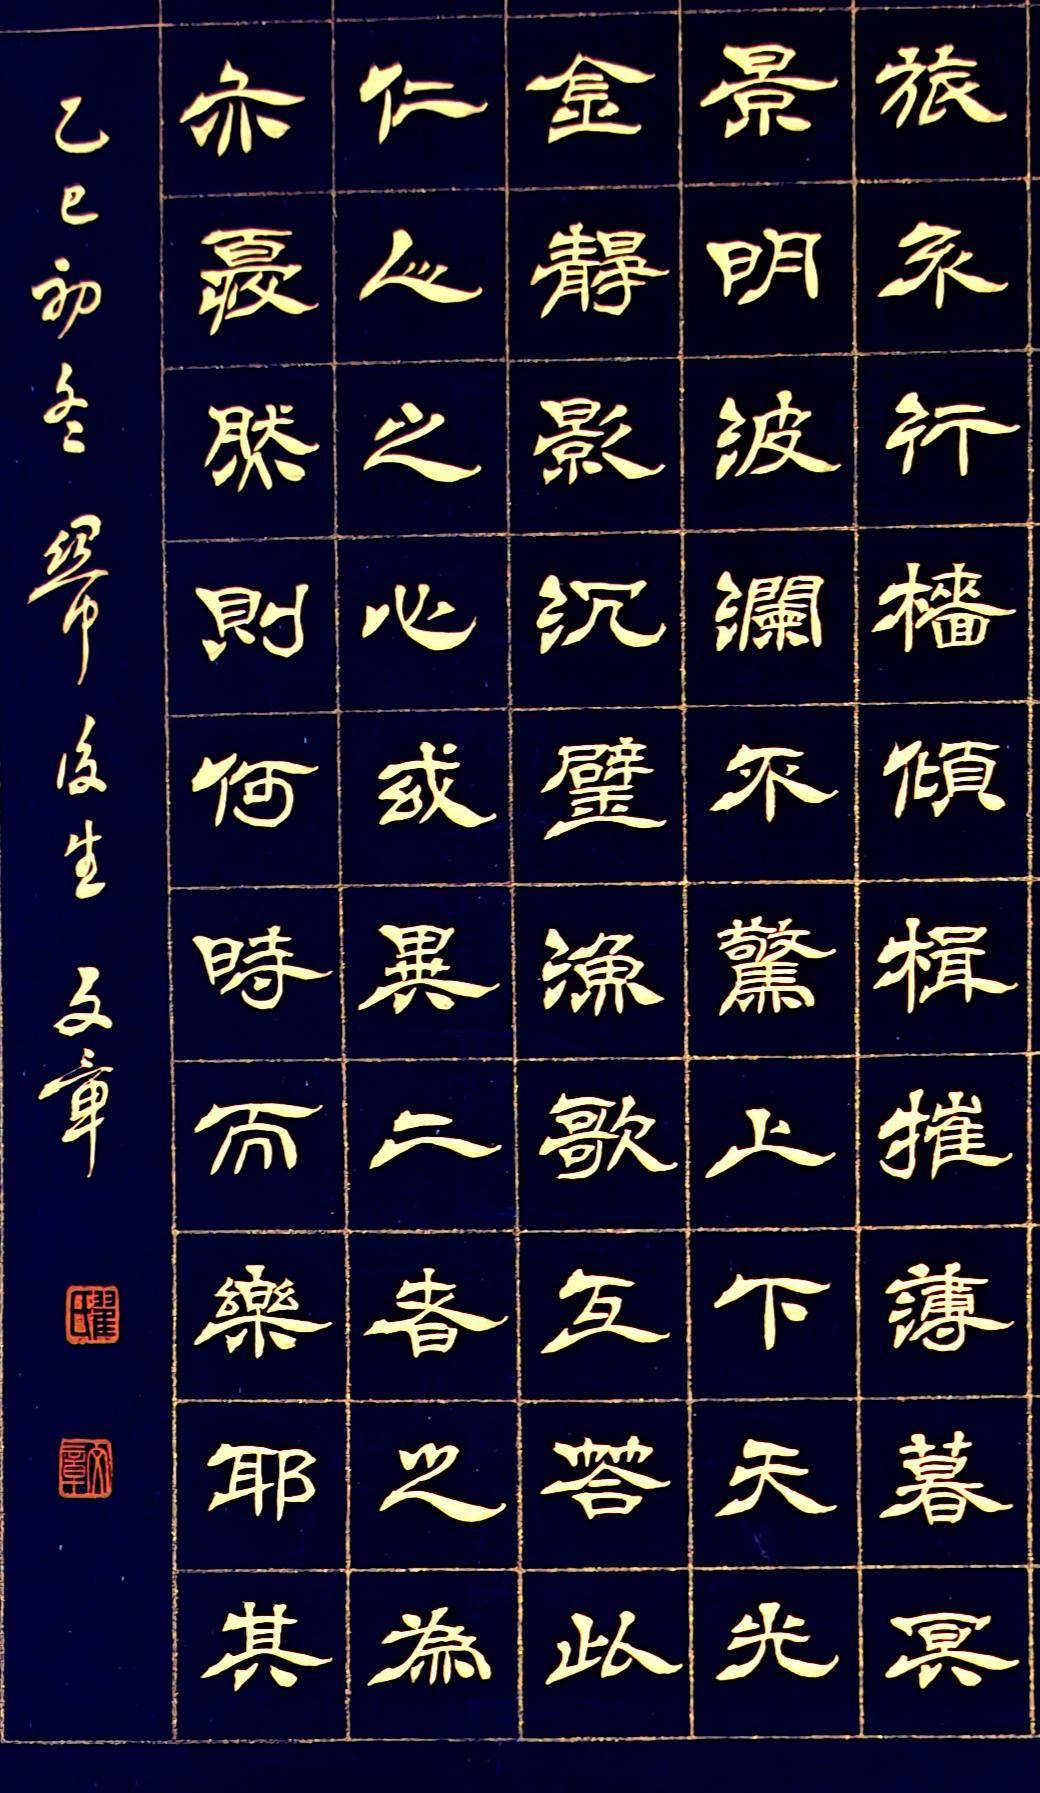 旅不行檣傾楫摧薄暮冥
景明波瀾不驚上下天光
金靜影沉璧漁歌互答此
仁人之心或異二者之為
亦憂然則何時而樂耶其
乙巳初冬 後生 文章
翟氏
文章